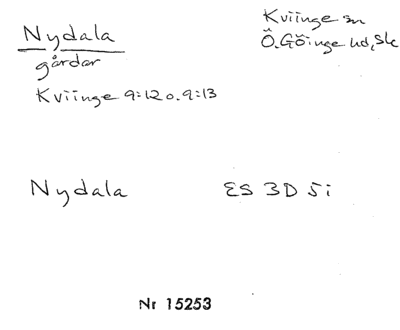 Nydala
gårdar
Kviinge 9:12 o. 9:13
Kviinge sn
Ö. Göinge hd, Sk
Nydala ES 3D 5i
Nr 15253